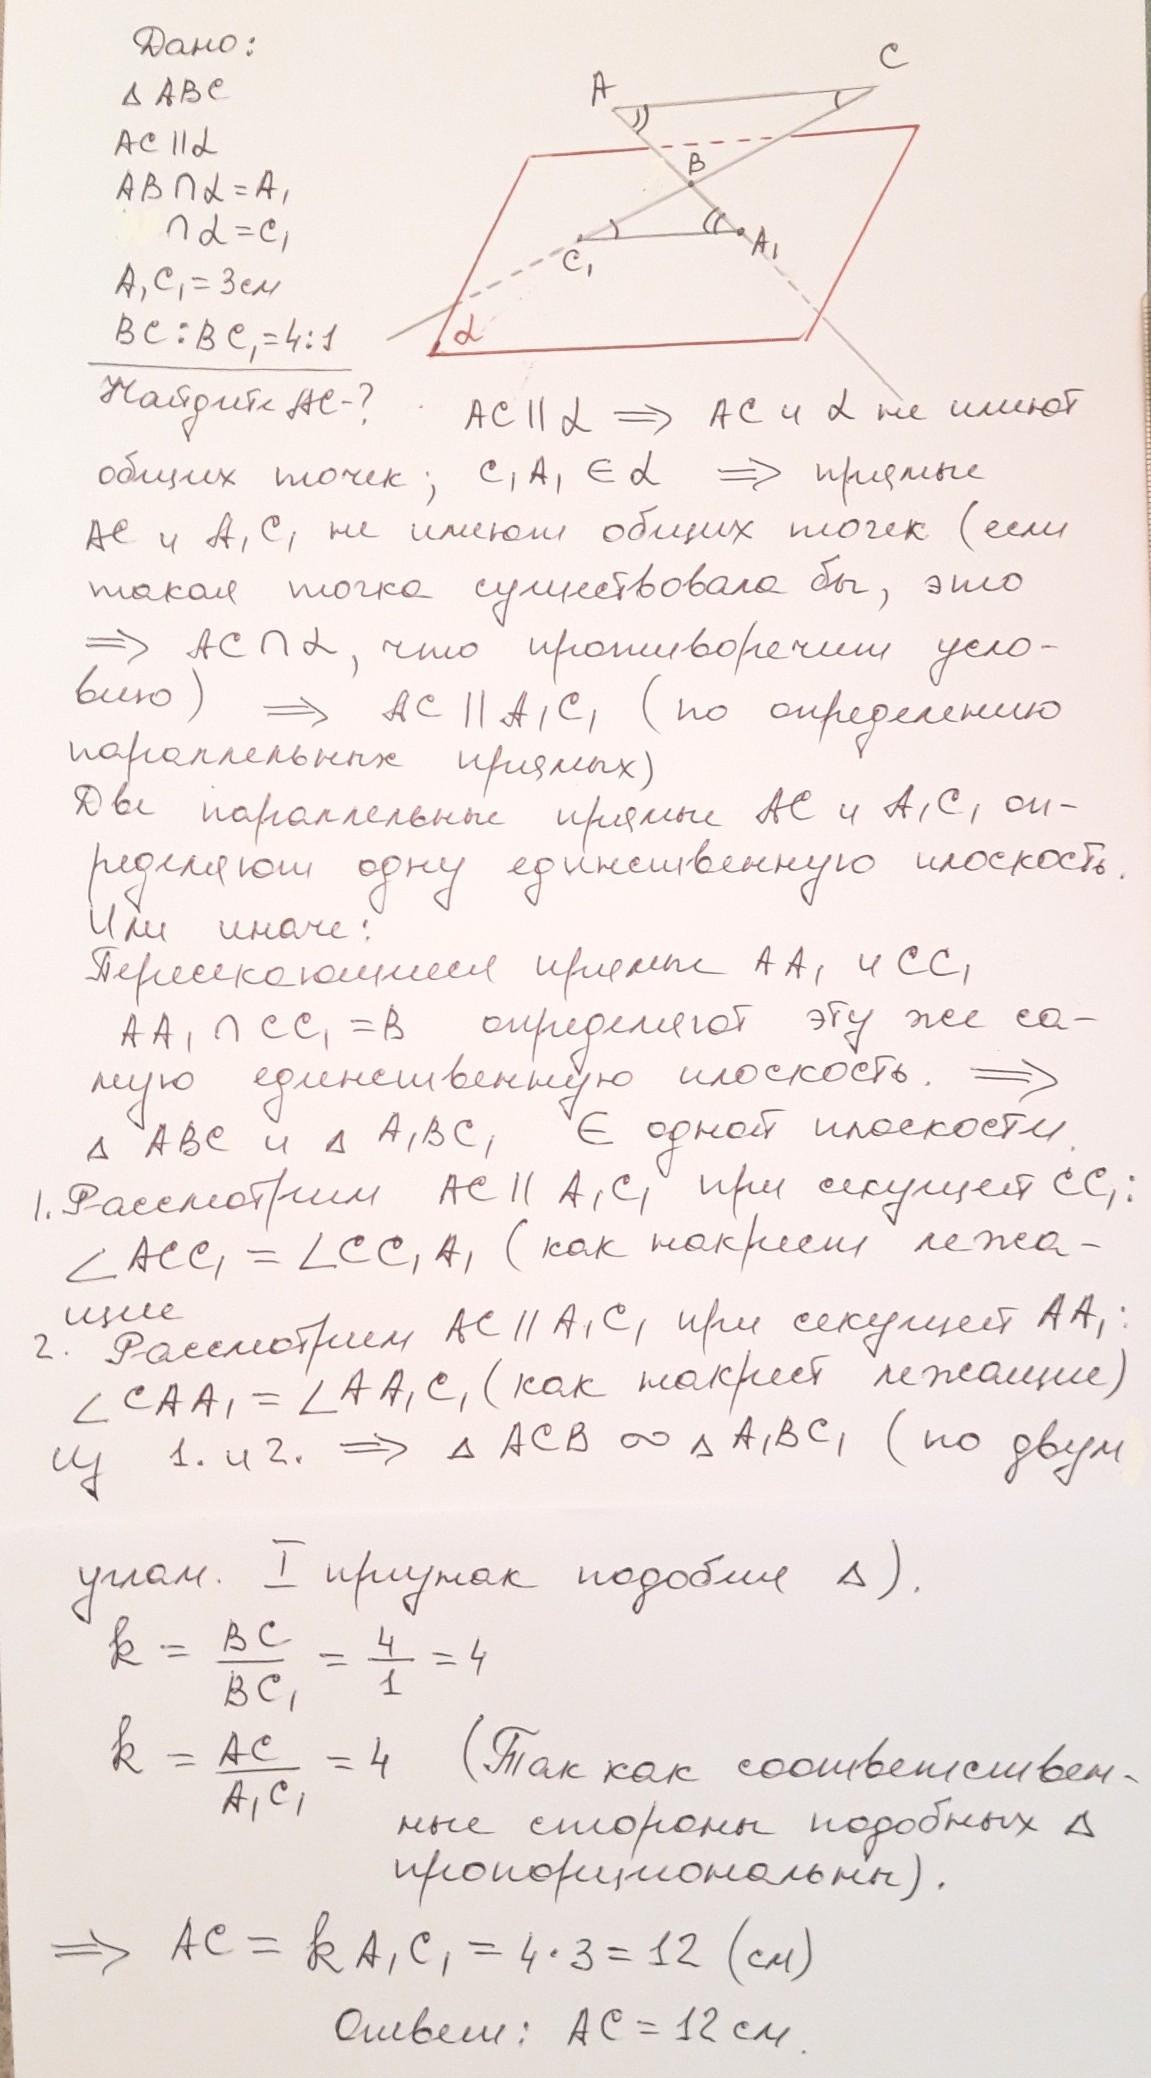 Дано:
△ ABC
AC || α
AB ∩ α = A₁
∩ α = C₁
A₁C₁ = 3 см
BC : BC₁ = 4:1
Найдите AC-?
A
C
B
C₁
A₁
α
AC || α ⇒ AC и α не имеют
общих точек; C₁A₁ ∈ α ⇒ прямые
AC и A₁C₁ не имеют общих точек (если
такая точка существовала бы, это
⇒ AC ∩ α, что противоречит усло-
вию) ⇒ AC || A₁C₁ (по определению
параллельных прямых)
Две параллельные прямые AC и A₁C₁ оп-
ределяют одну единственную плоскость.
Или иначе:
Пересекающиеся прямые AA₁ и CC₁
AA₁ ∩ CC₁ = B определяют эту же са-
мую единственную плоскость. ⇒
△ ABC и △ A₁BC₁ ∈ одной плоскости.
1. Рассмотрим AC || A₁C₁ при секущей CC₁:
∠ACC₁ = ∠CC₁A₁ (как накрест лежа-
щие
2. Рассмотрим AC || A₁C₁ при секущей AA₁:
∠CAA₁ = ∠AA₁C₁ (как накрест лежащие)
Из 1. и 2. ⇒ △ ACB ∞ △ A₁BC₁ (по двум
углам. I признак подобия △).
k = BC/BC₁ = 4/1 = 4
k = AC/A₁C₁ = 4 (Так как соответствен-
ные стороны подобных △
пропорциональны).
⇒ AC = k A₁C₁ = 4·3 = 12 (см)
Ответ: AC = 12 см.